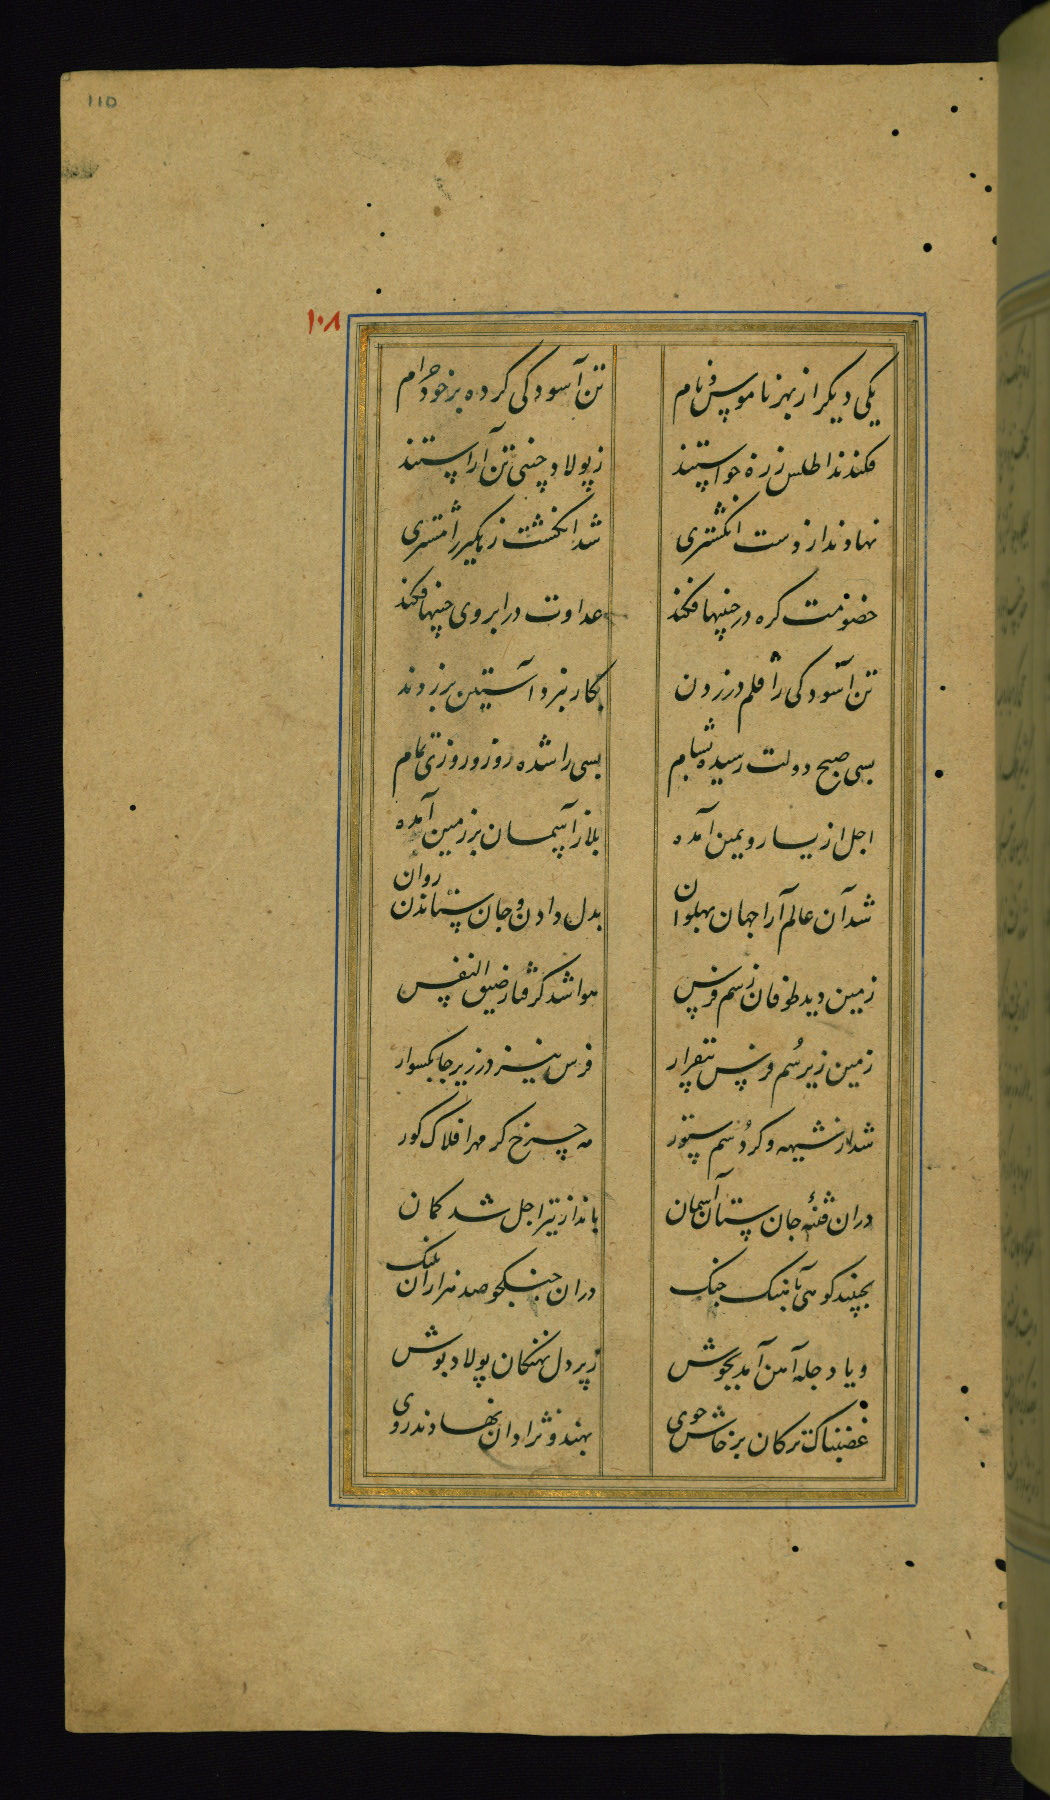 110
۱۰۸
یکی دیکر از بهر ناموس و نام تن آسودکی کرده بر خود حرام
فکندند اطلس زره خواستند ز پولاد چینی تن آراستند
نهادند از دست انکشتری شد انکشت زهکیر را مشتری
خصومت کره در جبینها فکند عداوت در ابروی چینها فکند
تن آسودکی را قلم در زدن بکار نبرد آستین بر زدند
بسی صبح دولت رسیده بشام بسی را شده روز و روزی تمام
اجل از یسار و یمین آمده بلا ز آسمان بر زمین آمده
شد آن عالم آرا جهان پهلوان بدل دادن و جان ستاندن روان
زمین دید طوفان ز سم فرس هوا شد کرفتار ضیق النفس
زمین زیر سُم فرس بیقرار فرس نیز در زیر چابکسوار
شد از شیهه و کرد سُم ستور مه چرخ کر مهر افلاک کور
دران فتنه جان ستان آسمان بانداز تیر اجل شد کمان
بجنبید کوهی بآهنک جنک دران جنکجو صد هزاران پلنک
و یا دجله آهن آمد بجوش ز پر دل نهنکان پولاد پوش
غضبناک ترکان پرخاش جوی بهندو نژادان نهادند روی